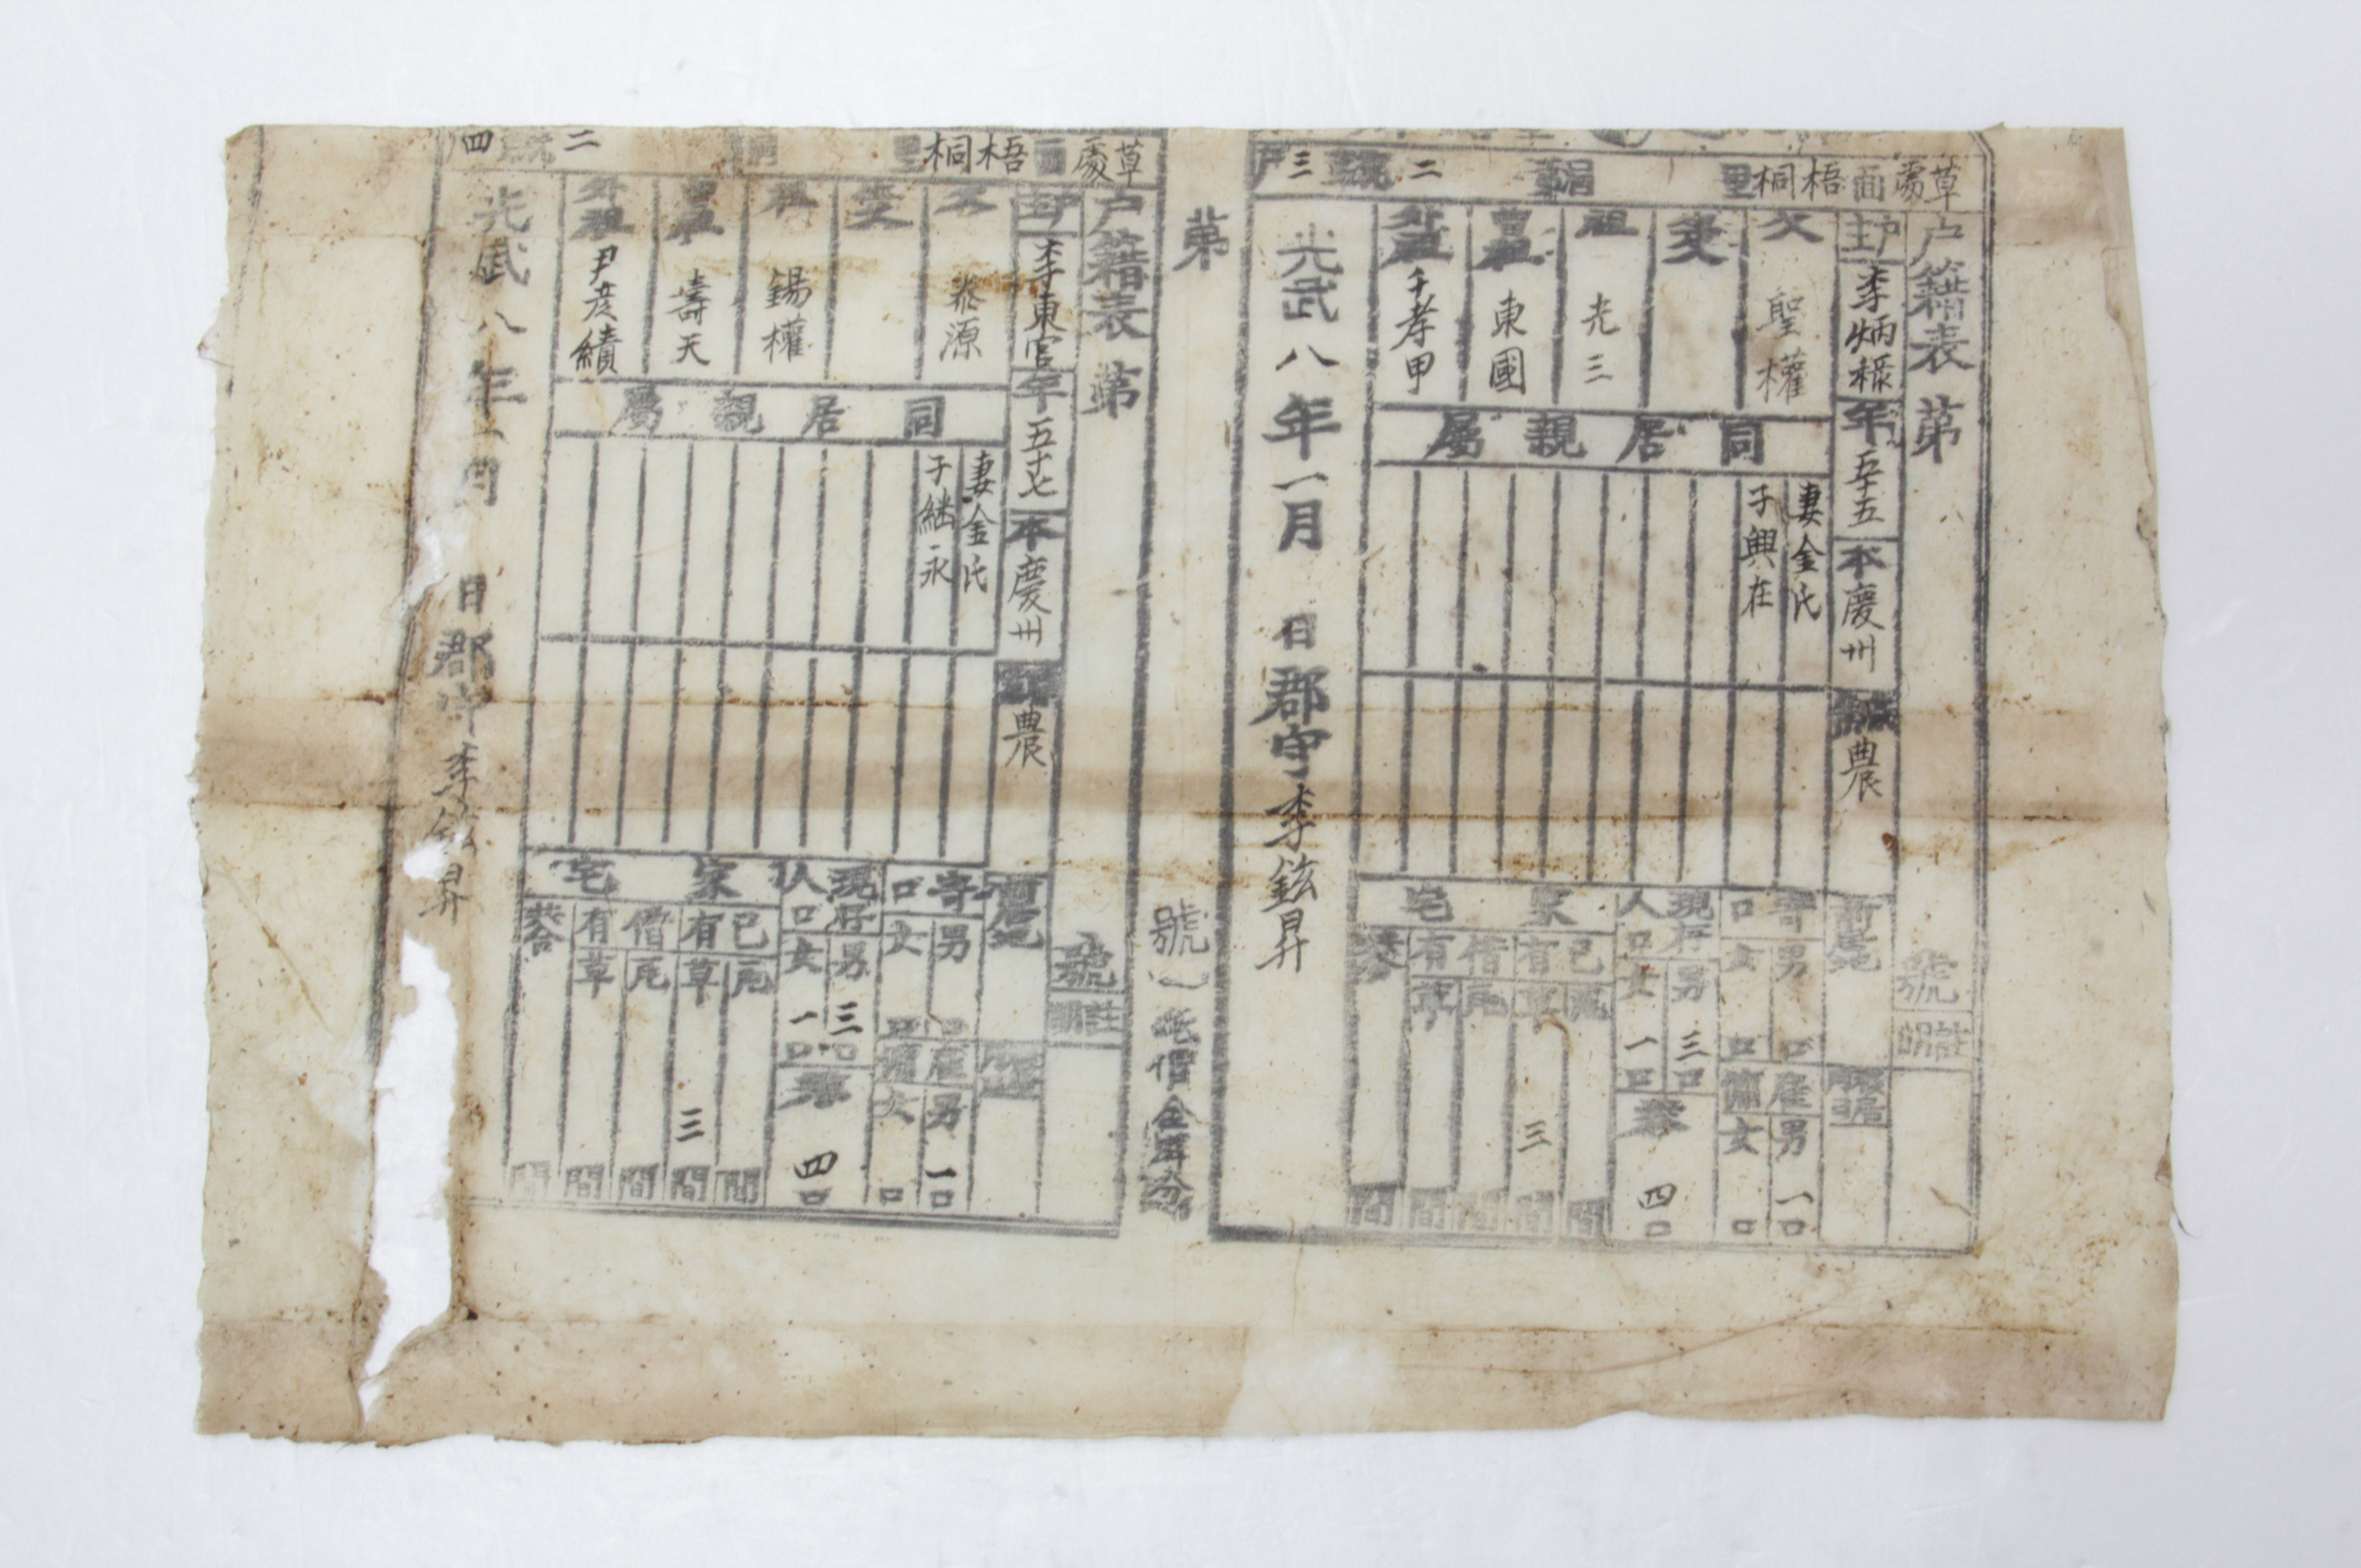 草處面梧桐里 二 三戶
戶籍表 第 號
戶主 李炳稶 年五十五 本慶州 農
父 聖權
祖 光三
曾祖 東國
外祖 千孝甲
同居親屬
妻金氏
子興在
前居地
寄口 男 口 女 口
雇傭 男 一口 女 口
現存人口 男 三口 女 一口
共 四口
家宅
己有 瓦 間 草 三 間
借有 瓦 間 草 間
共合 間
光武八年一月 日 郡守李鉉昇
第 號
草處面梧桐里 二 四
戶籍表 第 號
戶主 李東官 年五十七 本慶州 農
父 泰源
祖 錫權
曾祖 壽天
外祖 尹彦績
同居親屬
妻金氏
子繼永
前居地
寄口 男 口 女 口
雇傭 男 一口 女 口
現存人口 男 三口 女 一口
共 四口
家宅
己有 瓦 間 草 三 間
借有 瓦 間 草 間
共合 間
光武八年一月 日 郡守李鉉昇